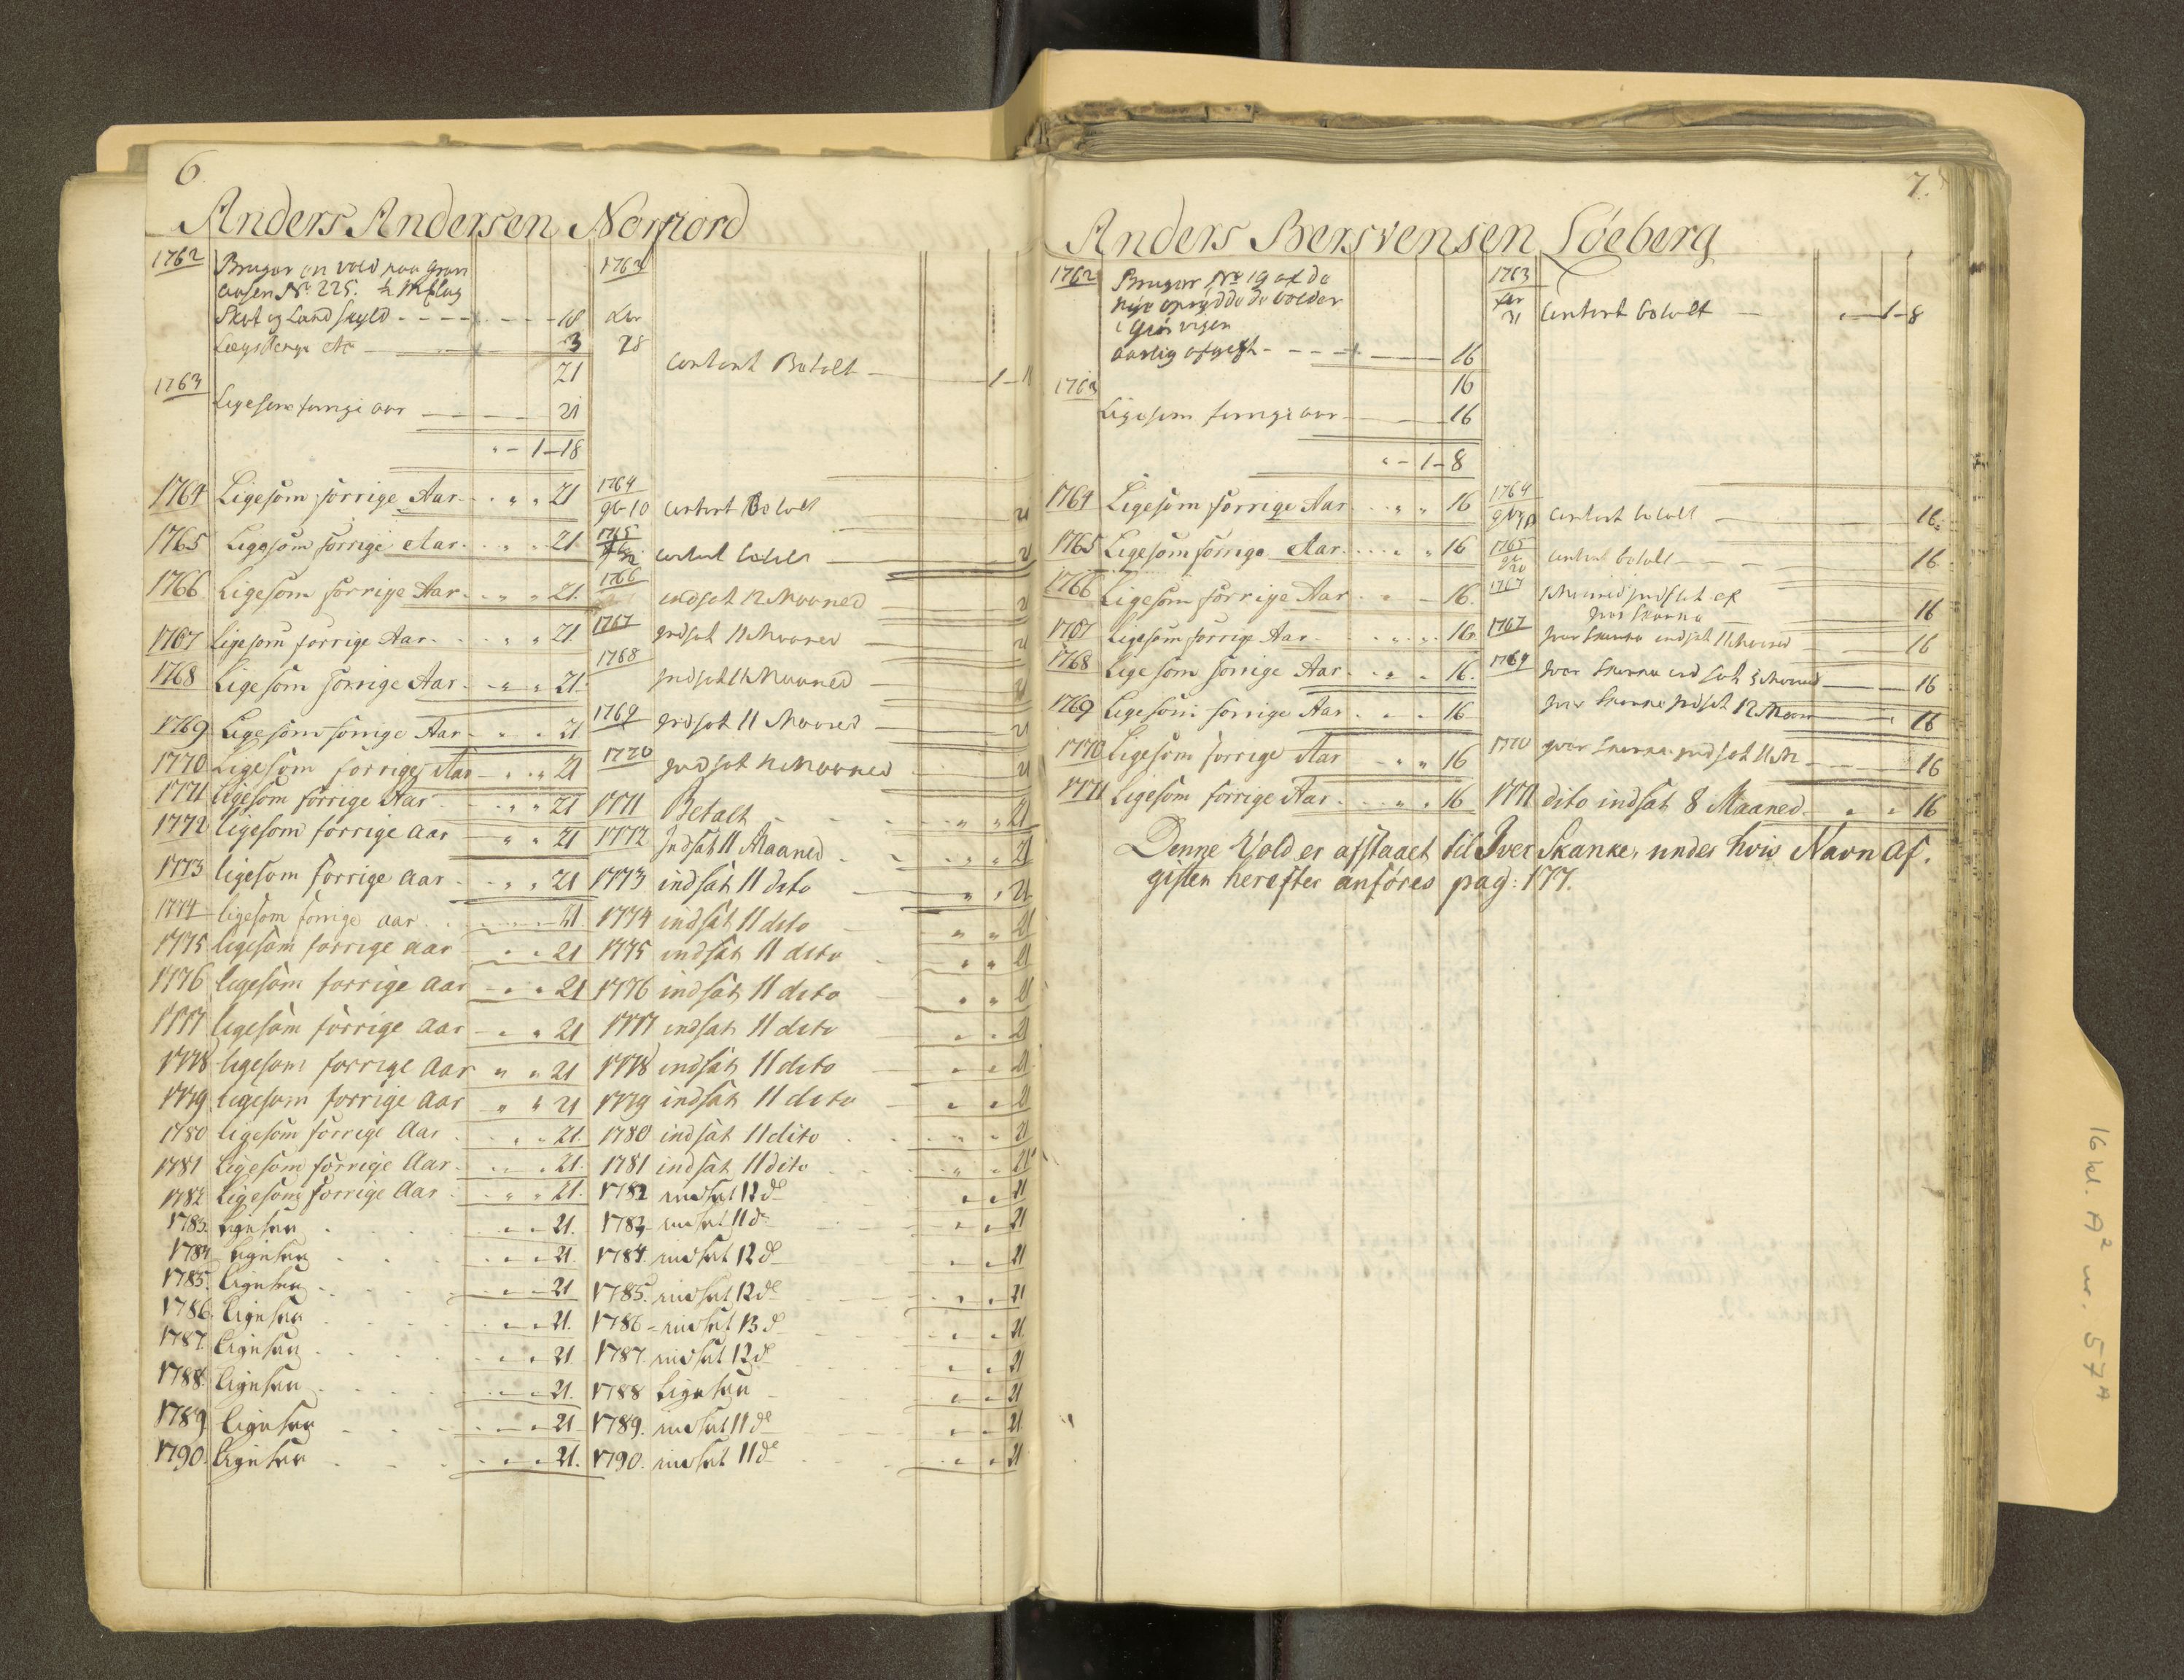 6.
Anders Andersen Norfiord
1762 Bruger en vold paa Gran
aasen No 225. ½ Mæhlag
Skat og Landskyld - - - - 18
Lægspenge etc 3
21
1763
Ligesom forrige aar 21
" - 1 - 18
1764 Ligesom forrige Aar " " 21
1765 Ligesom forrige Aar " " 21
1766 Ligesom forrige Aar " " 21.
1767 Ligesom forrige Aar " " 21.
1768 Ligesom forrige Aar " " 21.
1769 Ligesom forrige Aar " " 21
1770 Ligesom forrige Aar " " 21
1771 ligesom forrige Aar " " 21
1772 ligesom forrige Aar " " 21
1773 ligesom forrige Aar " " 21
1774 ligesom forrige aar 21
1775 ligesom forrige aar " " 21
1776 ligesom forrige Aar " " 21
1777 ligesom forrige Aar " " 21
1778 ligesom forrige Aar " " 21
1779 ligesom forrige Aar " " 21
1780 ligesom forrige Aar " " 21.
1781 Ligesom forrige Aar " " 21.
1782 Ligesom forrige Aar " " 21.
1783. Ligesaa " " 21.
1784 Ligesaa " " 21.
1785. Ligesaa " " 21
1786. Ligesaa " " 21.
1787. Ligesaa " " 21
1788. Ligesaa " " 21.
1789 Ligesaa " " 21
1790. Ligesaa " " 21.
1763
28
Contant Betalt 1 -
1764
10 Contant Betalt 21
1765
Contant betalt 21
1766
indsat 12 Maaned 21
1767 Indsat 11 Maaned 21
1768
Indsat 11 Maaned 21
1769 Indsat 11 Maaned 21
1770 Indsat 11 Maaned 21
1771 Betalt " " 21
1772 Indsat 11 Maaned " " 21
1773 indsat 11 dito " " 21
1774 indsat 11 dito " " 21
1775 indsat 11 dito " " 21
1776 indsat 11 dito " " 21
1777 indsat 11 dito " " 21
1778 indsat 11 dito " " 21
1779 indsat 11 dito " " 21
1780 indsat 11 dito " " 21
1781 indsat 11 dito " " 21
1782 indsat 12 do " " 21
1783 indsat 11 do " " 21
1784. indsat 12 do " " 21
1785. indsat 12 do " " 21
1786 - indsat 13 do " " 21
1787. indsat 12 do " " 21
1788 Ligesaa " " 21
1789. indsat 11 do " " 21
1790. indsat 11 do " " 21
7.
Anders Bersvensen Söeberg
1762 Bruger No 19 af de
nye opryddede volder
i
aarlig afgift 16
16
1763
Ligesom forrige aar 16
" - 1 - 8
1764 Ligesom forrige Aar " " 16
1765 Ligesom forrige Aar " " 16
1766 Ligesom forrige Aar " 16.
1767 Ligesom forrige Aar " " 16.
1768 Ligesom forrige Aar " " 16.
1769 Ligesom forrige Aar " " 16
1770 Ligesom forrige Aar " " 16
1771 Ligesom forrige Aar " " 16
1763
31 Contant betalt " 1 - 8
1764
Contant betalt 16.
1765
20 Contant betalt 16.
1767 indsat af
Iver Skanke 16
1767 Iver Skanke indsat 11 Maaned 16
1769 Iver Skanke indsat 3 Maaned 16
Iver Skanke Indsat 12 Maan 16
1770 Iver Skanke Indsat 11 M 16
1771 dito indsat 8 Maaned " " 16
Denne Vold er afstaaet til Iver Skanke, under hvis Navn Af.
giften herefter anföres pag: 177.
16 kl. A² nr. 57ᴬ